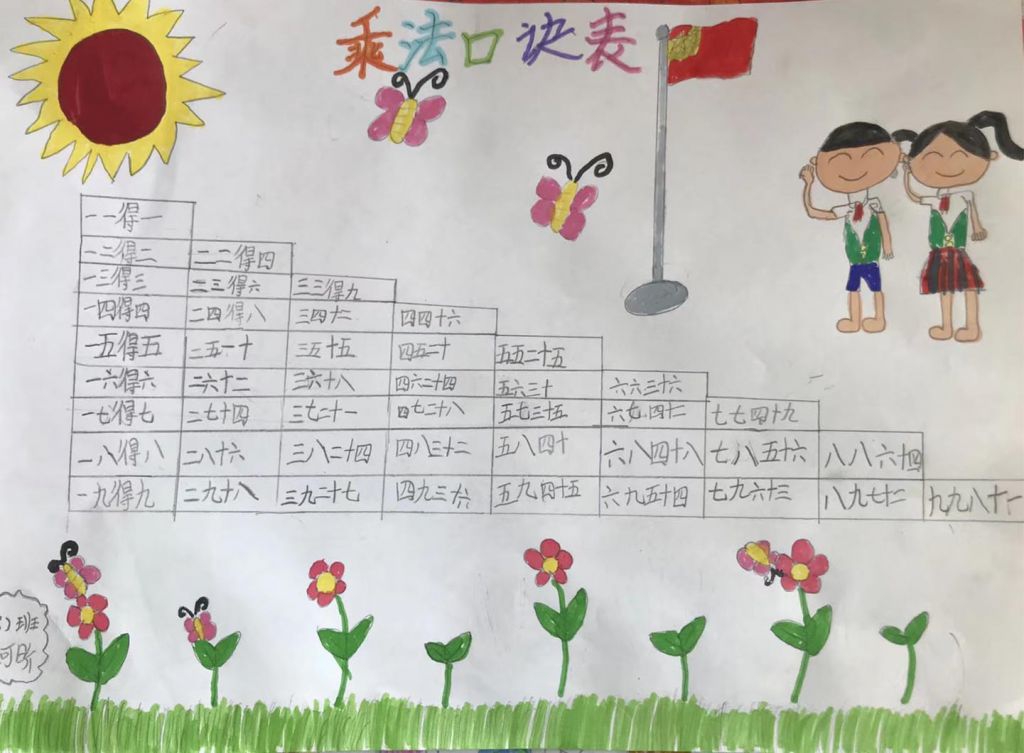 乘法口诀表
一一得一
一二得二 二二得四
一三得三 二三得六 三三得九
一四得四 二四得八 三四十二 四四十六
一五得五 二五一十 三五十五 四五二十 五五二十五
一六得六 二六十二 三六十八 四六二十四 五六三十 六六三十六
一七得七 二七十四 三七二十一 四七二十八 五七三十五 六七四十二 七七四十九
一八得八 二八十六 三八二十四 四八三十二 五八四十 六八四十八 七八五十六 八八六十四
一九得九 二九十八 三九二十七 四九三十六 五九四十五 六九五十四 七九六十三 八九七十二 九九八十一
班